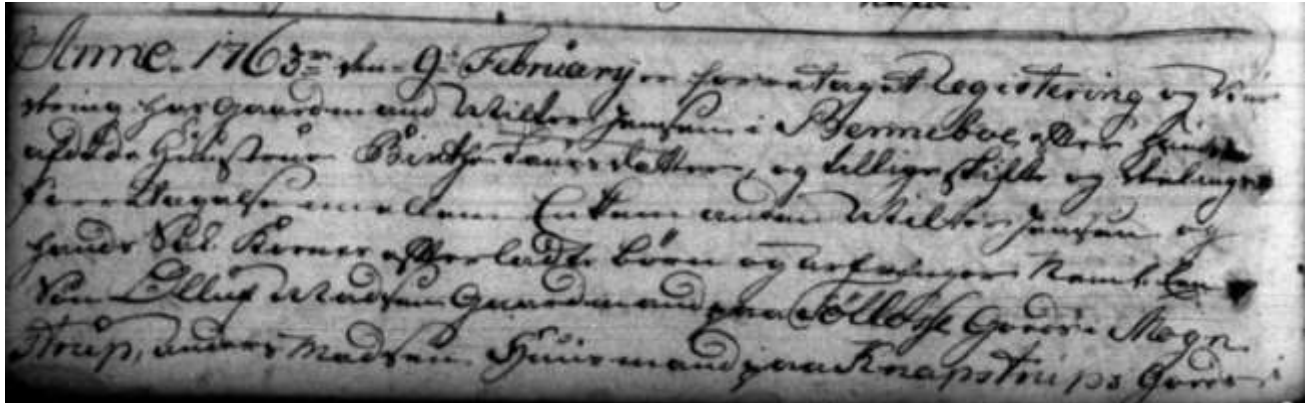 Anno 1763 den 9 February er foretaget Registering og Vur
dering hos Gaardmand Wilken Jensen i Benneboe, efter hands
afdøde Hustrue Birthe Larsdatter, og tillige skifte og
imellem Enkemanden Wilken Jensen og
hands Sal. Koenes efterladte børn og arfvinger Neml. En
Søn Olluf Madsen Gaardmand paa Tølløse Godts i Mogn
strup, anders Madsen Huusmand paa Knapstrups Godts i